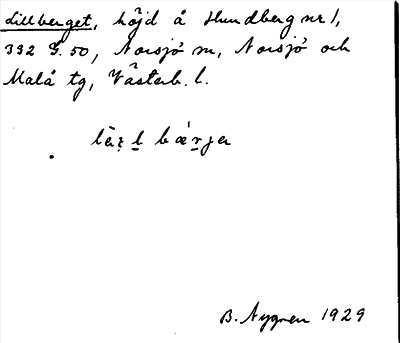 Lillberget, höjd å Hundberg nr 1,
332 G. 50, Norsjö sn, Norsjö och
Malå tg, Västerb. l.
B. Nygren 1929